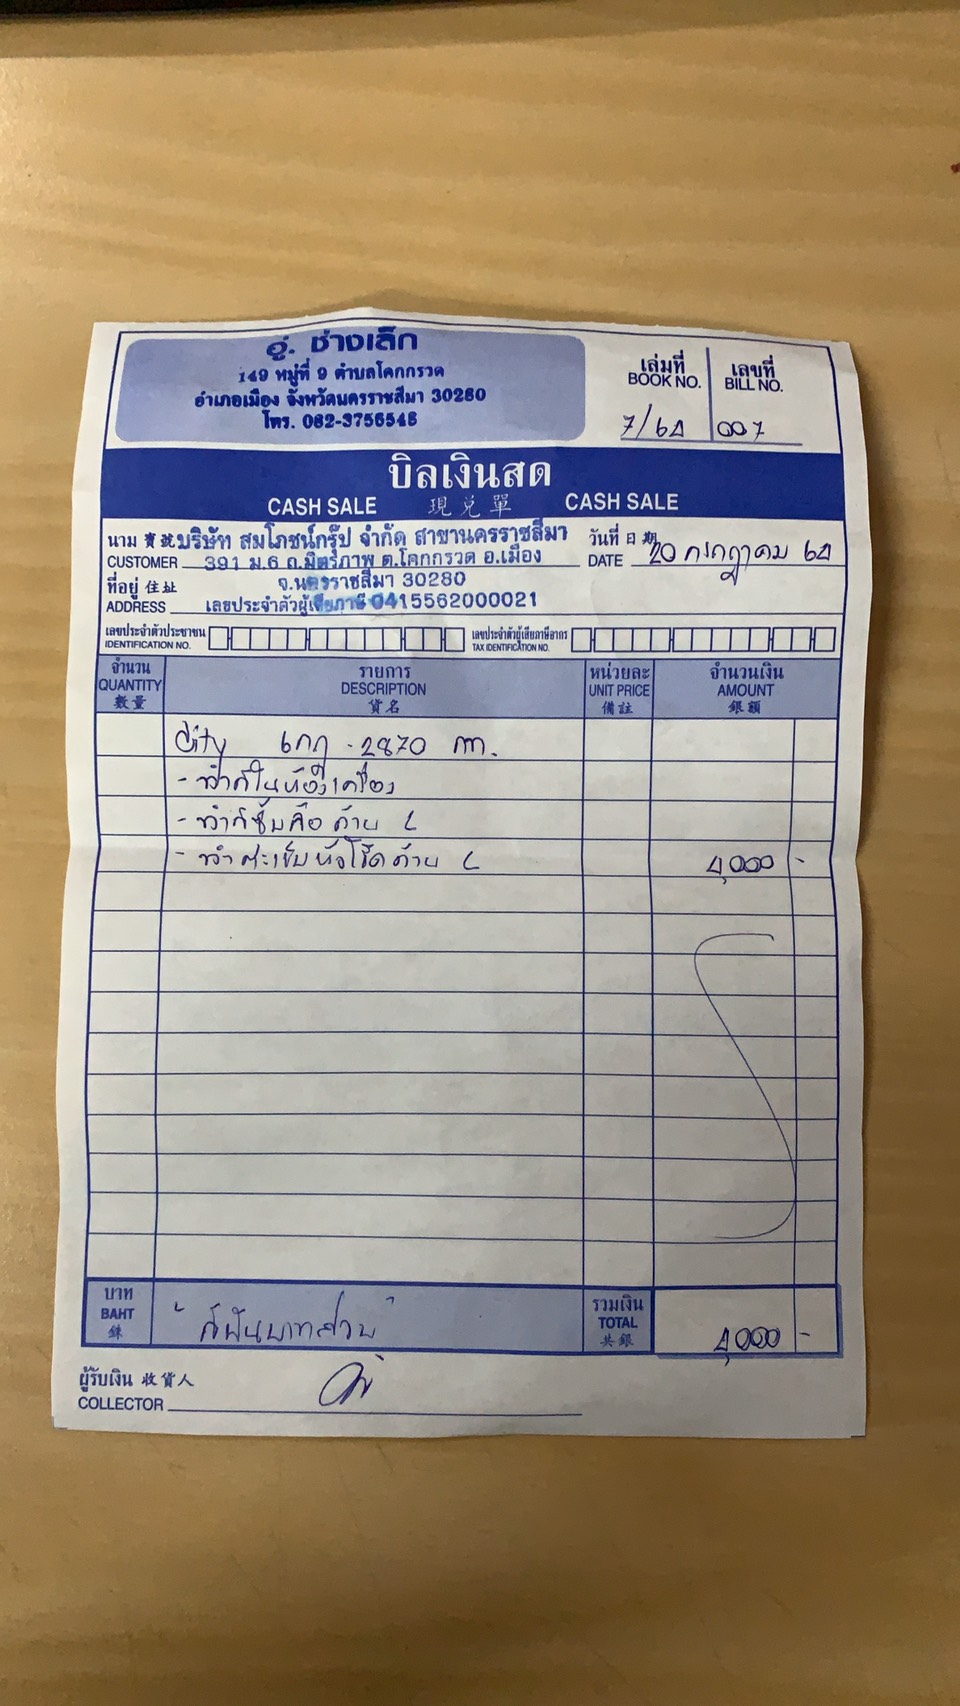 อู่. ช่างเล็ก
149 หมู่ที่ 9 ตำบลโคกกรวด
อำเภอเมือง จังหวัดนครราชสีมา 30280
โทร. 082-3756546
เล่มที่ เลขที่
BOOK NO. BILL NO.
7/64 007
บิลเงินสด
CASH SALE 現兌單 CASH SALE
นาม 寶號 บริษัท สมโภชน์กรุ๊ป จำกัด สาขานครราชสีมา วันที่ 日期
CUSTOMER 391 ม.6 ถ.มิตรภาพ ต.โคกกรวด อ.เมือง DATE 20 กรกฎาคม 64
ที่อยู่ 住址 จ.นครราชสีมา 30280
ADDRESS เลขประจำตัวผู้เสียภาษี 0415562000021
เลขประจำตัวประชาชน เลขประจำตัวผู้เสียภาษีอากร
IDENTIFICATION NO. TAX IDENTIFICATION NO.
จำนวน รายการ หน่วยละ จำนวนเงิน
QUANTITY DESCRIPTION UNIT PRICE AMOUNT
數量 貨名 備註 銀額
City 6กฎ - 2870 กท.
- ทำสีในห้องเครื่อง
- ทำสีซุ้มล้อ ด้าน L
- ทำตะเข็บหัวโช๊คด้าน L 4,000 -
บาท รวมเงิน
BAHT "สี่พันบาทถ้วน" TOTAL 4,000 -
銖 共銀
ผู้รับเงิน 收貨人
COLLECTOR